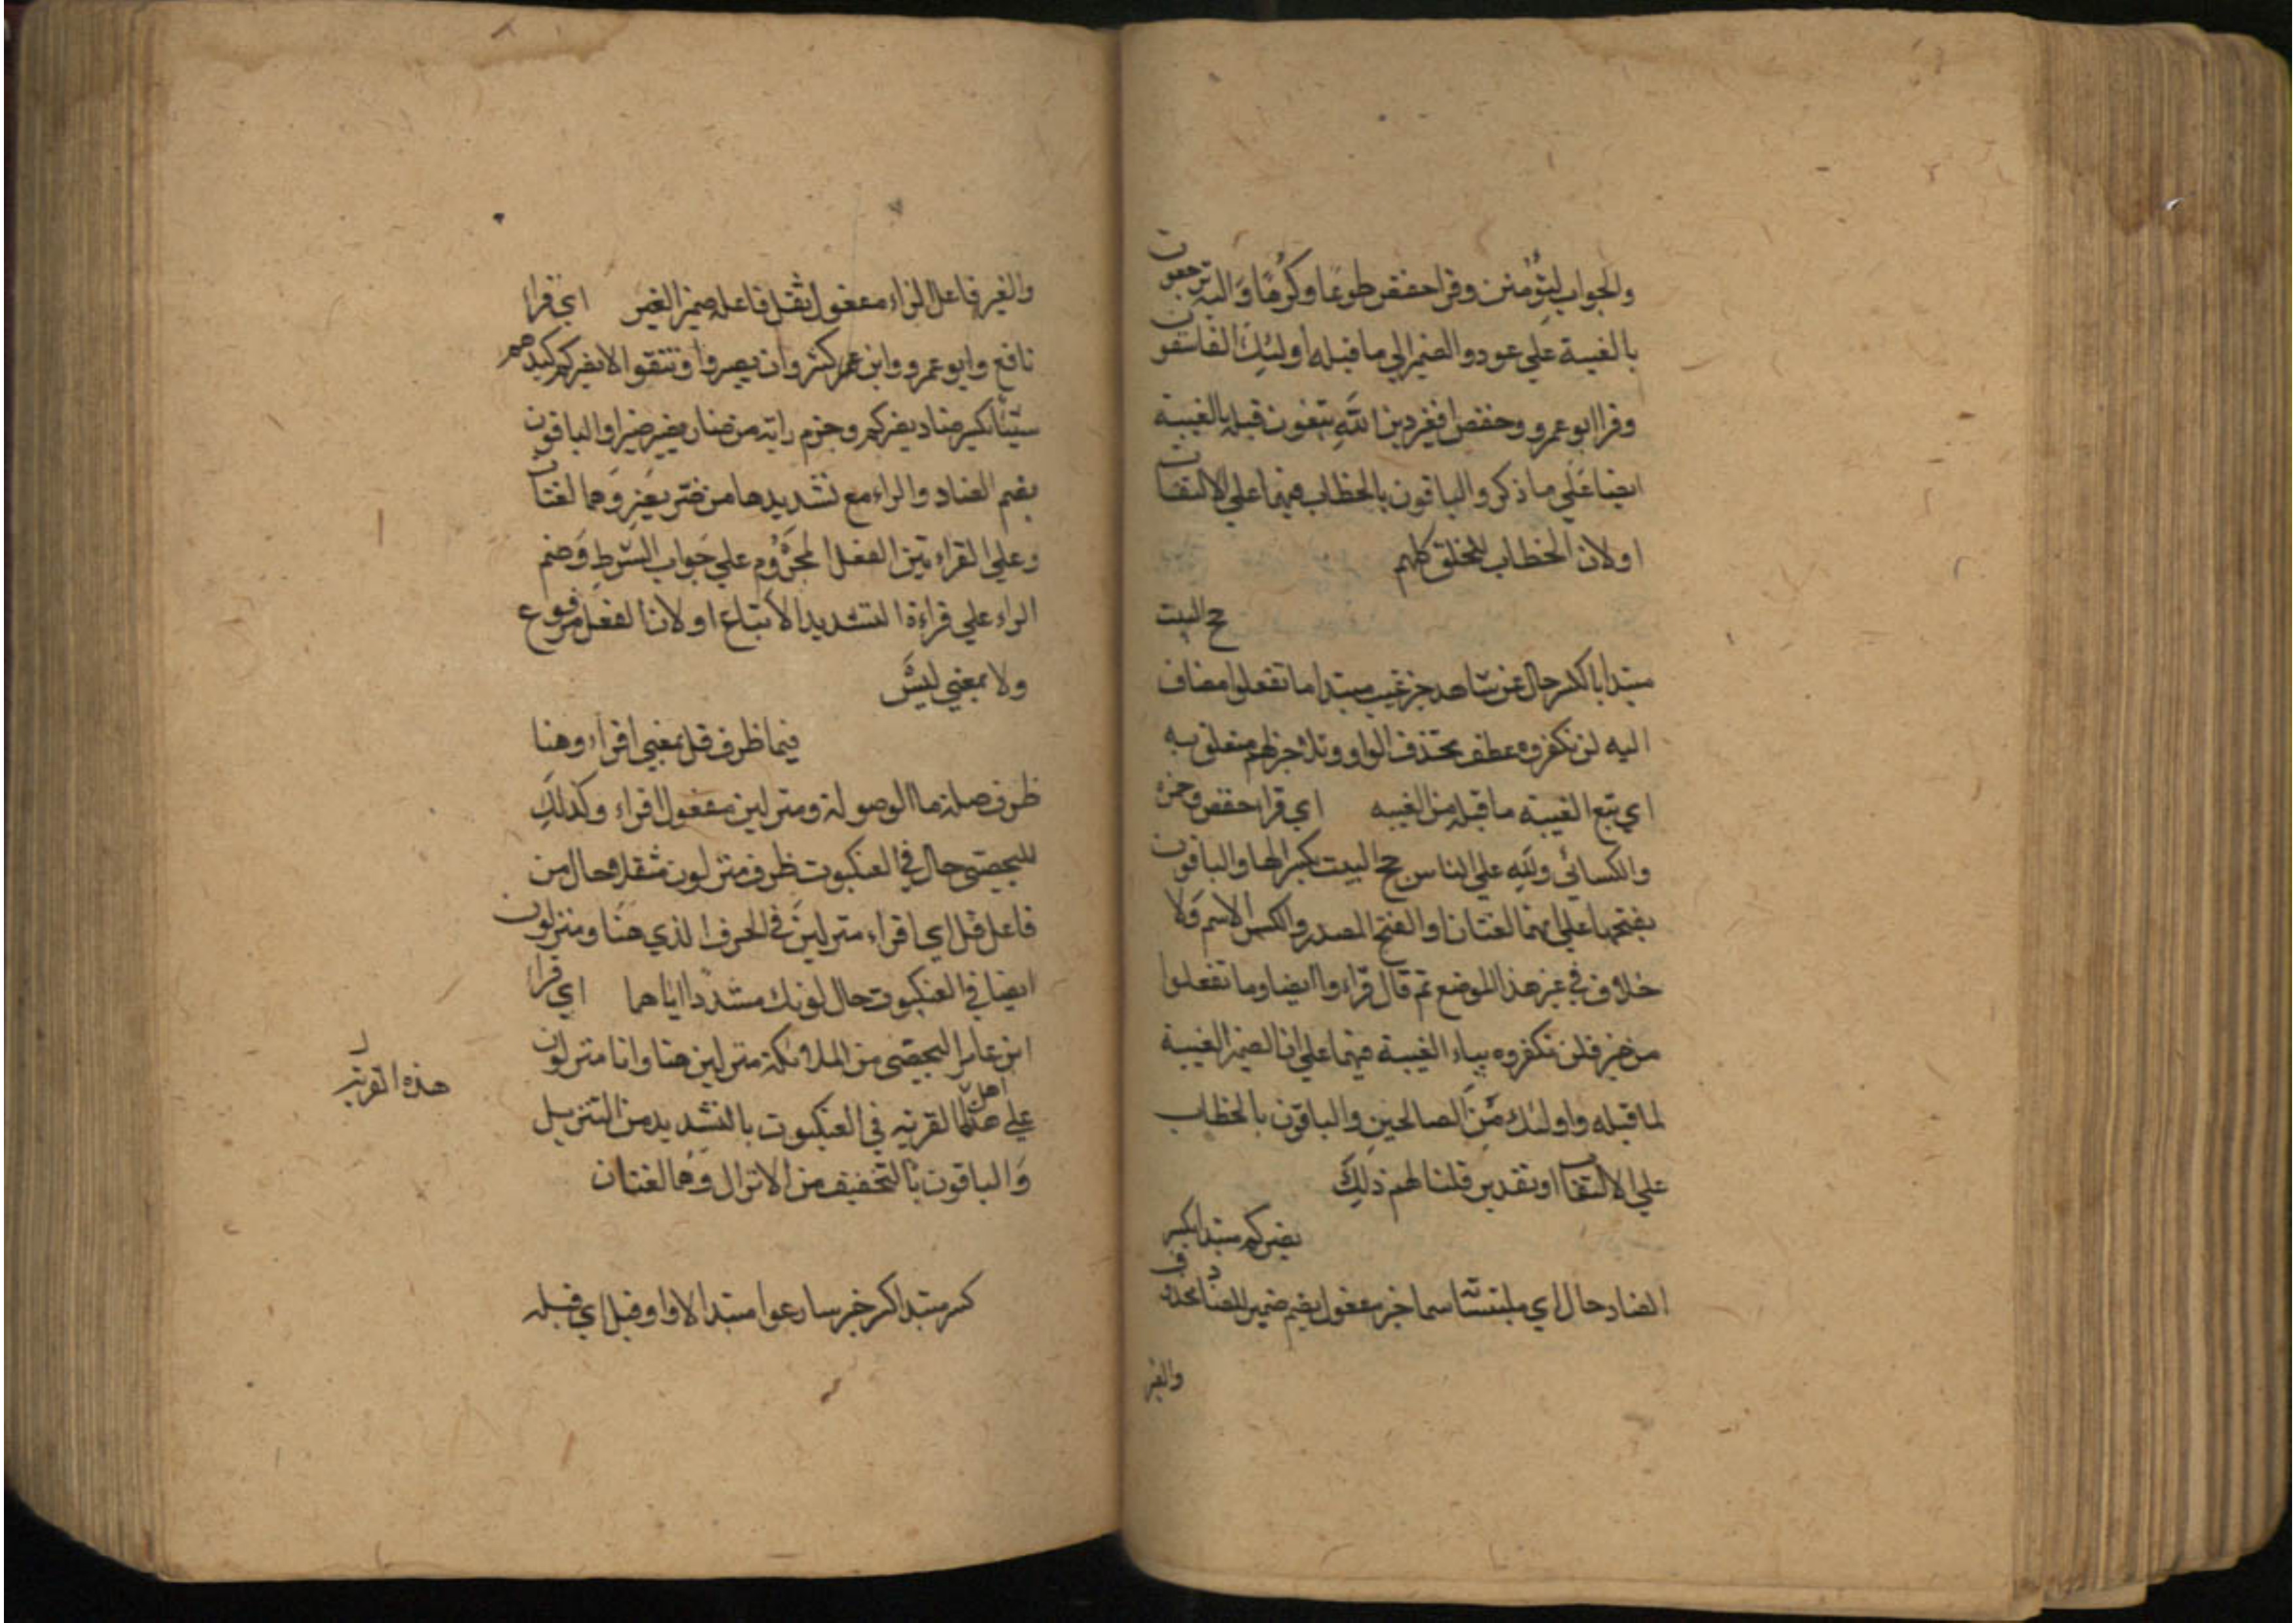 والجواب لتؤمنن وقرا حفص طوعا وكرها واليه ترجعون
بالغيبة علي عود والضمير الي ما قبله اولئك الفاسقون
وقرا ابو عمرو وحفص افغير دين الله يبغون قبله بالغيبة
ايضا علي ما ذكر والباقون بالخطاب فيهما علي الالتفات
اولان الخطاب للخلق كلهم
حج البيت
مبتدا بالكسر حال عن شاهد خبر غيب مبتدا ما تفعلوا مضاف
اليه لن تكفروه عطف بحذف الواو وتلا خبر لهم متعلق به
اي تبع الغيبة ما قبله من الغيبه اي قرا حفص وحمزه
والكسائي ولله علي الناس حج البيت بكسر الحا والباقون
بفتحها علي انهما لغتان او الفتح المصدر والكسر الاسم ولا
خلاف في غير هذا الموضع ثم قال قراءوا ايضا وما تفعلوا
من خير فلن تكفروه بياء الغيبة فيهما علي ان الضمير الغيبة
لما قبله واولئك من الصالحين والباقون بالخطاب
علي الالتفات او تقدير قلنا لهم ذلك
يضركم مبتدا بكسر
الضاد حال اي ملتبسا سما خبر مفعول يضم ضمير للضاد محذوف
والغير
والغير فاعل الراء مفعول ثقل فاعله ضمير الغير اي قرا
نافع وابو عمرو وابن كثير وان تصبروا وتتقوا لا يضركم كيدهم
شيئا بكسر ضاد يضركم وجزم رائه من ضار يضير ضيرا والباقون
بضم الضاد والراء مع تشديدها من ضر يضر وهما لغتان
وعلي القراءتين الفعل مجزوم علي جواب الشرط وضم
الراء علي قراءة التشديد الاتباع اولان الفعل مرفوع
ولا بمعني ليس
فيما ظرف قل بمعني اقراء وهنا
ظرف صلة ما الموصولة ومنزلين مفعول اقراء وكذلك
لليحصبي حال في العنكبوت ظرف منزلون مثقلا حال من
فاعل قل اي اقراء منزلين في الحرف الذي هنا ومنزلون
ايضا في العنكبوت حال لونك مشددا اياهما اي قرا
ابن عامر اليحصبي من الملائكة منزلين هنا وانا منزلون
علي اهل القرية في العنكبوت بالتشديد من التنزيل
والباقون بالتخفيف من الانزال وهما لغتان
كسر مبتدا خبر سارعوا مبتدا لا واو قبل اي قبله
هذه القرية